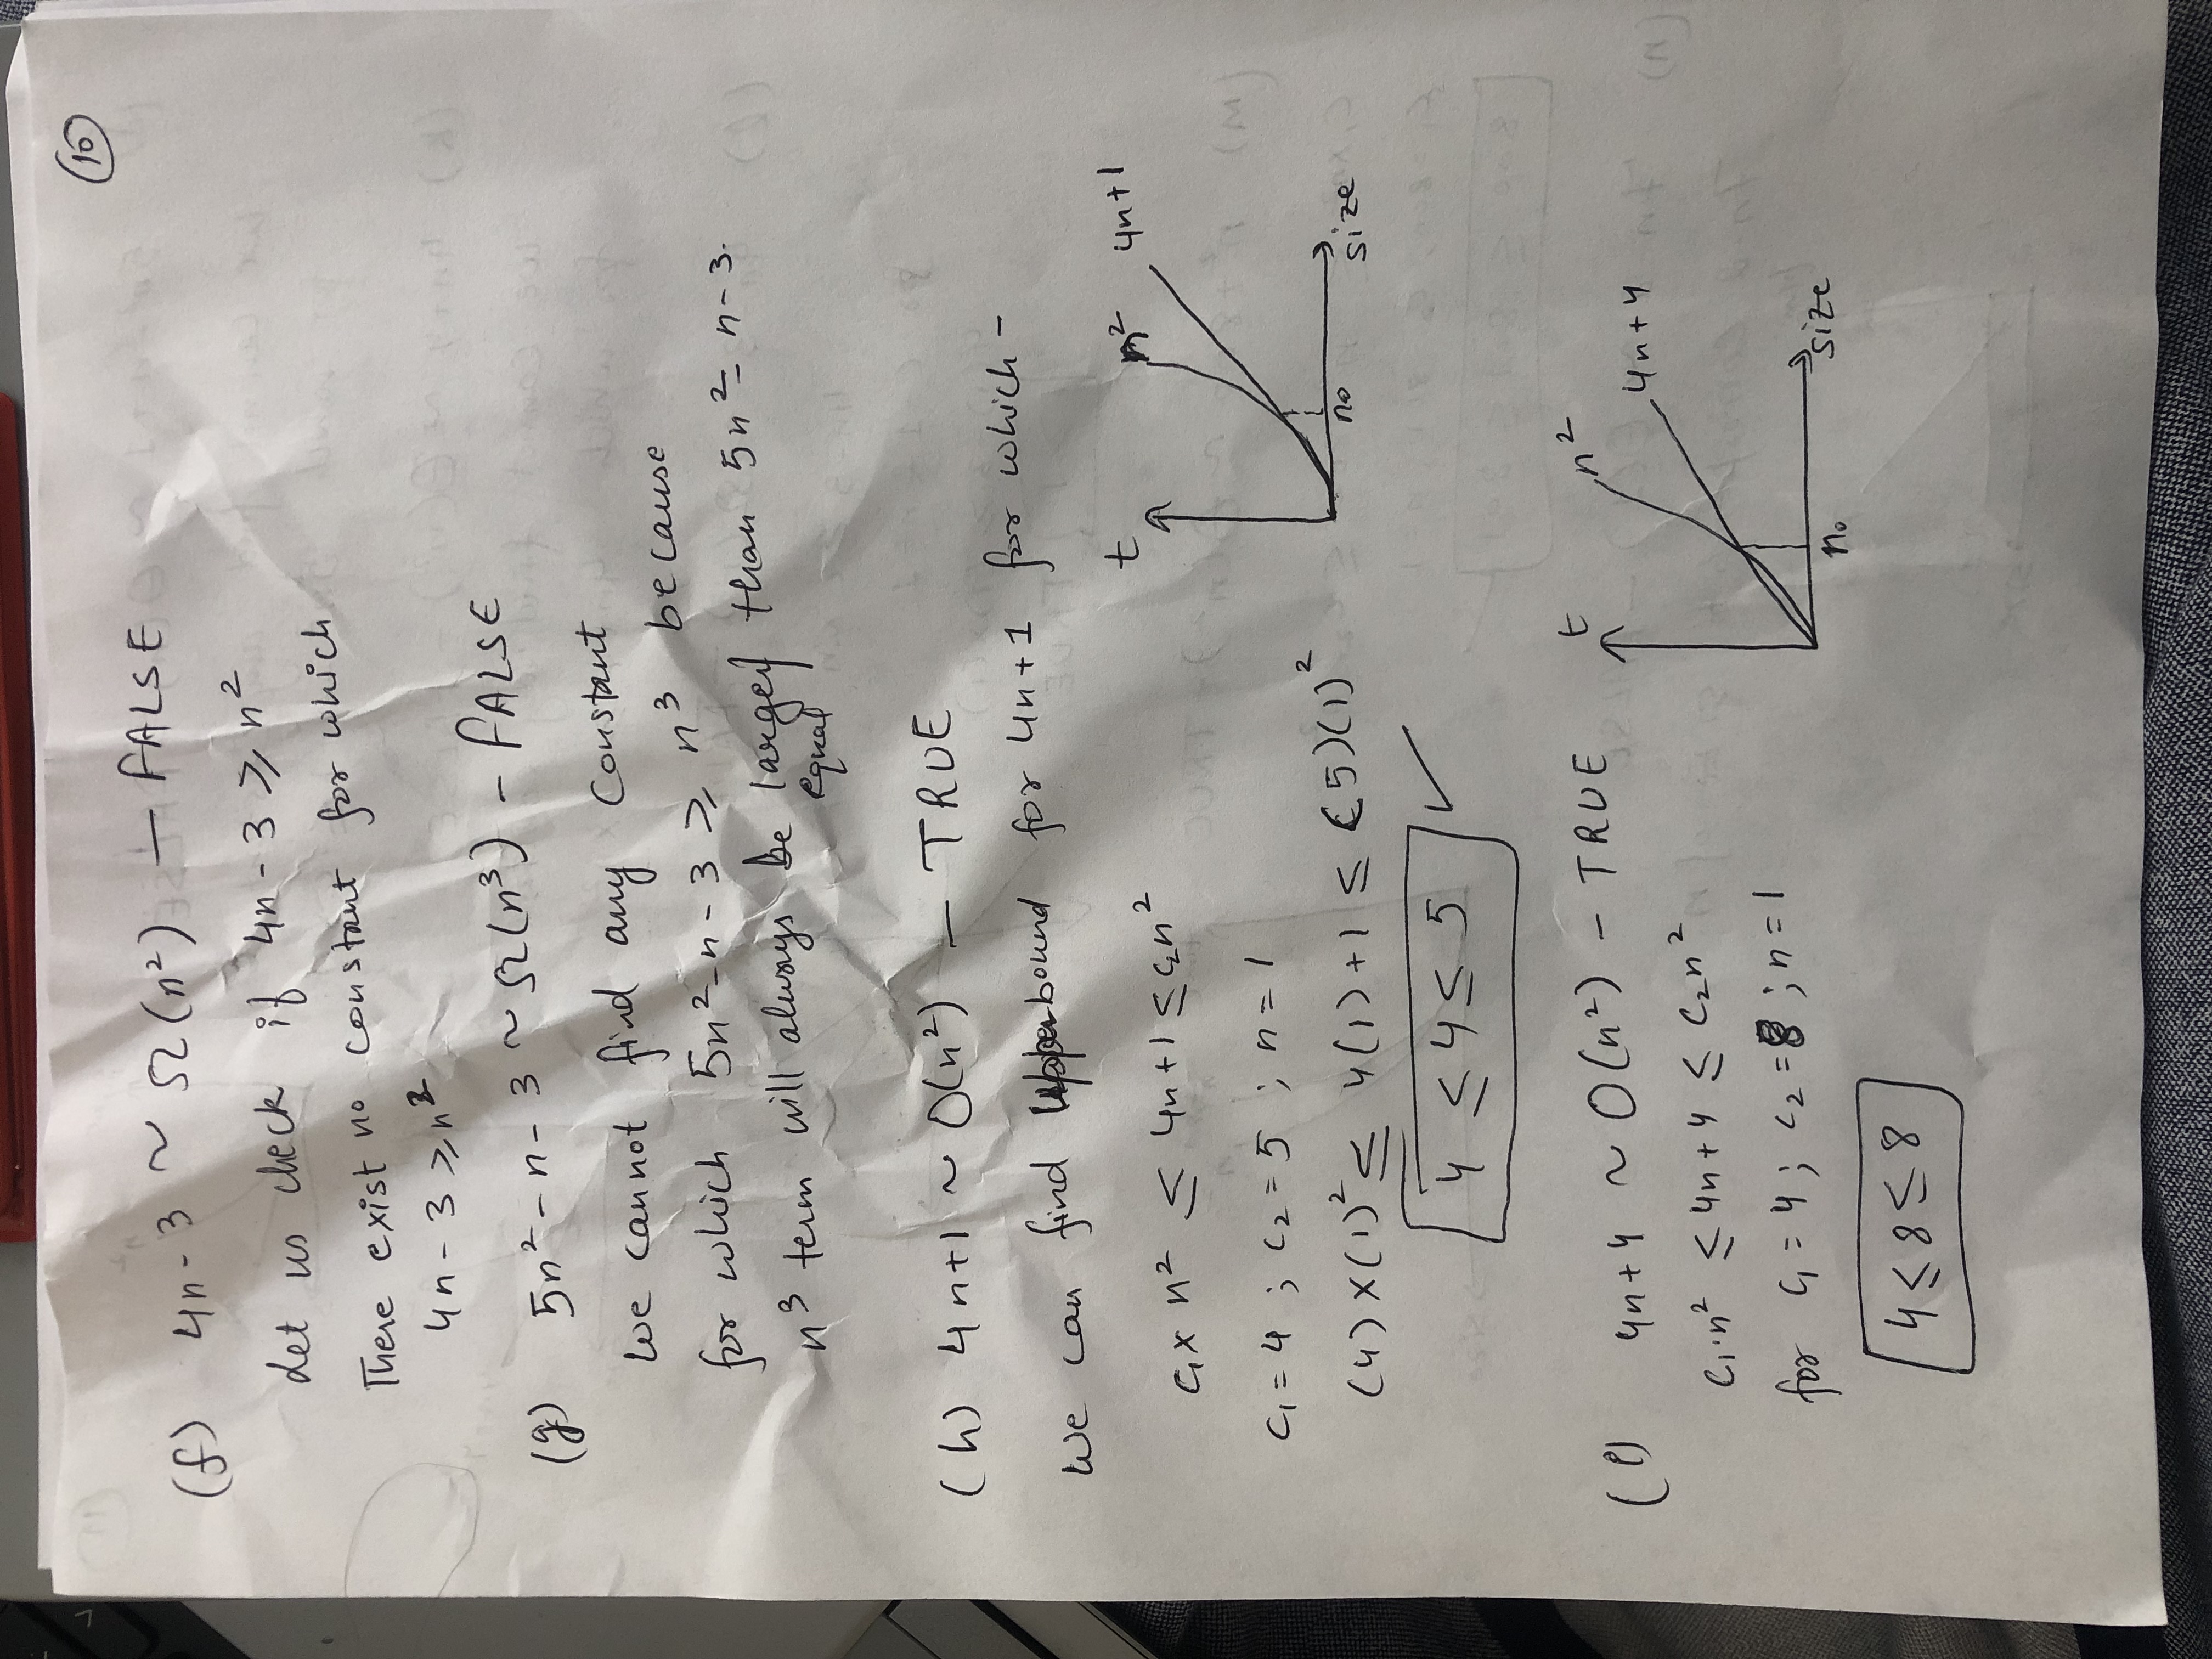 10
(f) 4n-3 ~ Ω(n²) — FALSE
Let us check if 4n-3 ≥ n²
There exist no constant for which
4n-3 ≥ n²
(g) 5n²-n-3 ~ Ω(n³) - FALSE
We cannot find any constant
for which 5n²-n-3 ≥ n³ because
n³ term will always be larger than 5n²-n-3.
equal
(h) 4n+1 ~ O(n²) — TRUE
We can find upperbound for 4n+1 for which -
c₁ x n² ≤ 4n+1 ≤ c₂n²
c₁ = 4 ; c₂ = 5 ; n = 1
(4) x (1)² ≤ 4(1)+1 ≤ (5)(1)²
4 ≤ 4 ≤ 5 ✓
t
n²
4n+1
n₀
size
(i) 4n+4 ~ O(n²) - TRUE
c₁·n² ≤ 4n+4 ≤ c₂n²
for c₁ = 4 ; c₂ = 8 ; n = 1
4 ≤ 8 ≤ 8
t
n²
4n+4
n₀
size